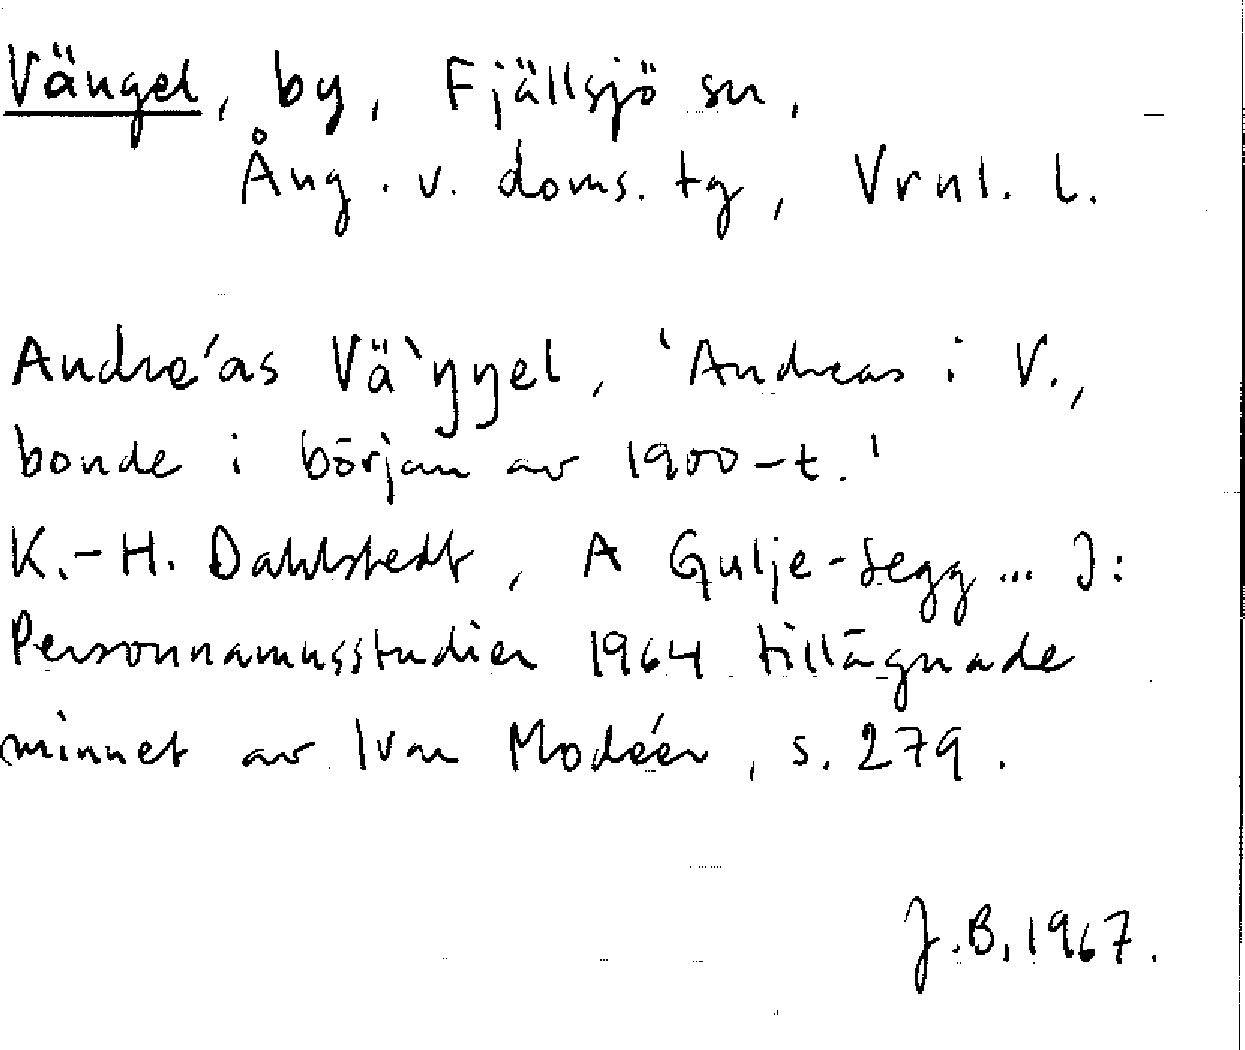 Vängel, by, Fjällsjö sn,
Ång. v. doms. tg, Vrnl. l.
Andre´as Vä`ŋŋel, 'Andreas i V.,
bonde i början av 1900-t.'
K.-H. Dahlstedt, A Gulje-Segg... I:
Personnamnsstudier 1964 tillägnade
minnet av Ivar Modéer, s. 279.
J.B. 1967.